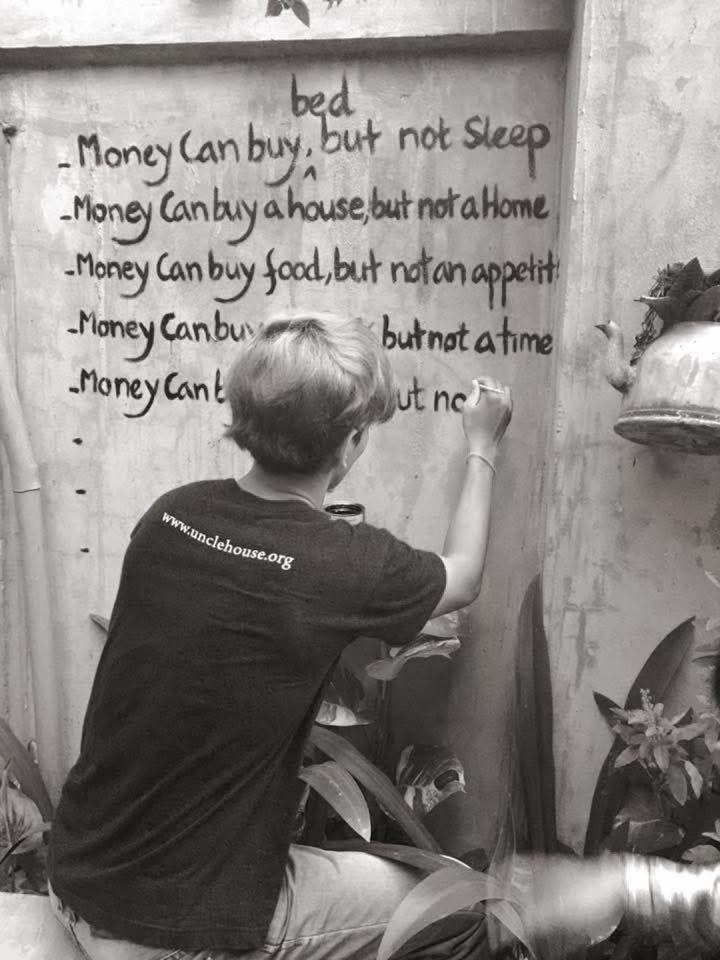 bed
- Money Can buy, but not Sleep
^
- Money Can buy a house, but not a Home
- Money Can buy food, but not an appetit
- Money Can buy but not a time
- Money Can but no
www.unclehouse.org